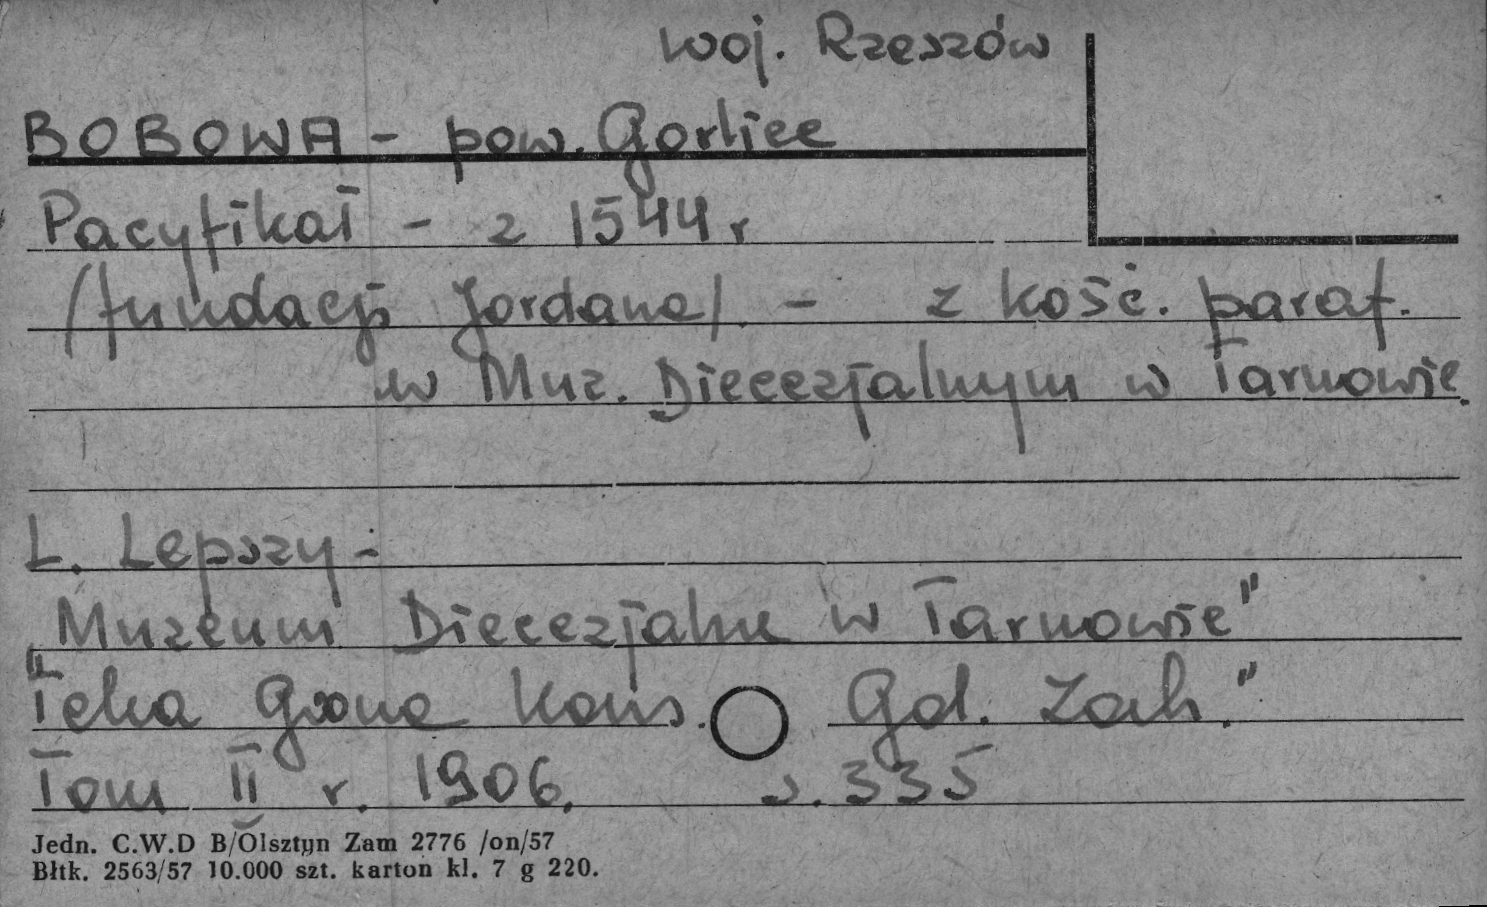 woj. Rzeszów
BOBOWA - pow. Gorlice
Pacyfikał - z 1544 r
(fundacji Jordana). - z kość. paraf.
w Muz. Diecezjalnym w Tarnowie.
L. Lepszy -
"Muzeum Diecezjalne w Tarnowie"
"Teka Grona Kons. Gal. Zach."
Tom II r. 1906. s. 335
Jedn. C.W.D B/Olsztyn Zam 2776 /on/57
Błtk. 2563/57 10.000 szt. karton kl. 7 g 220.